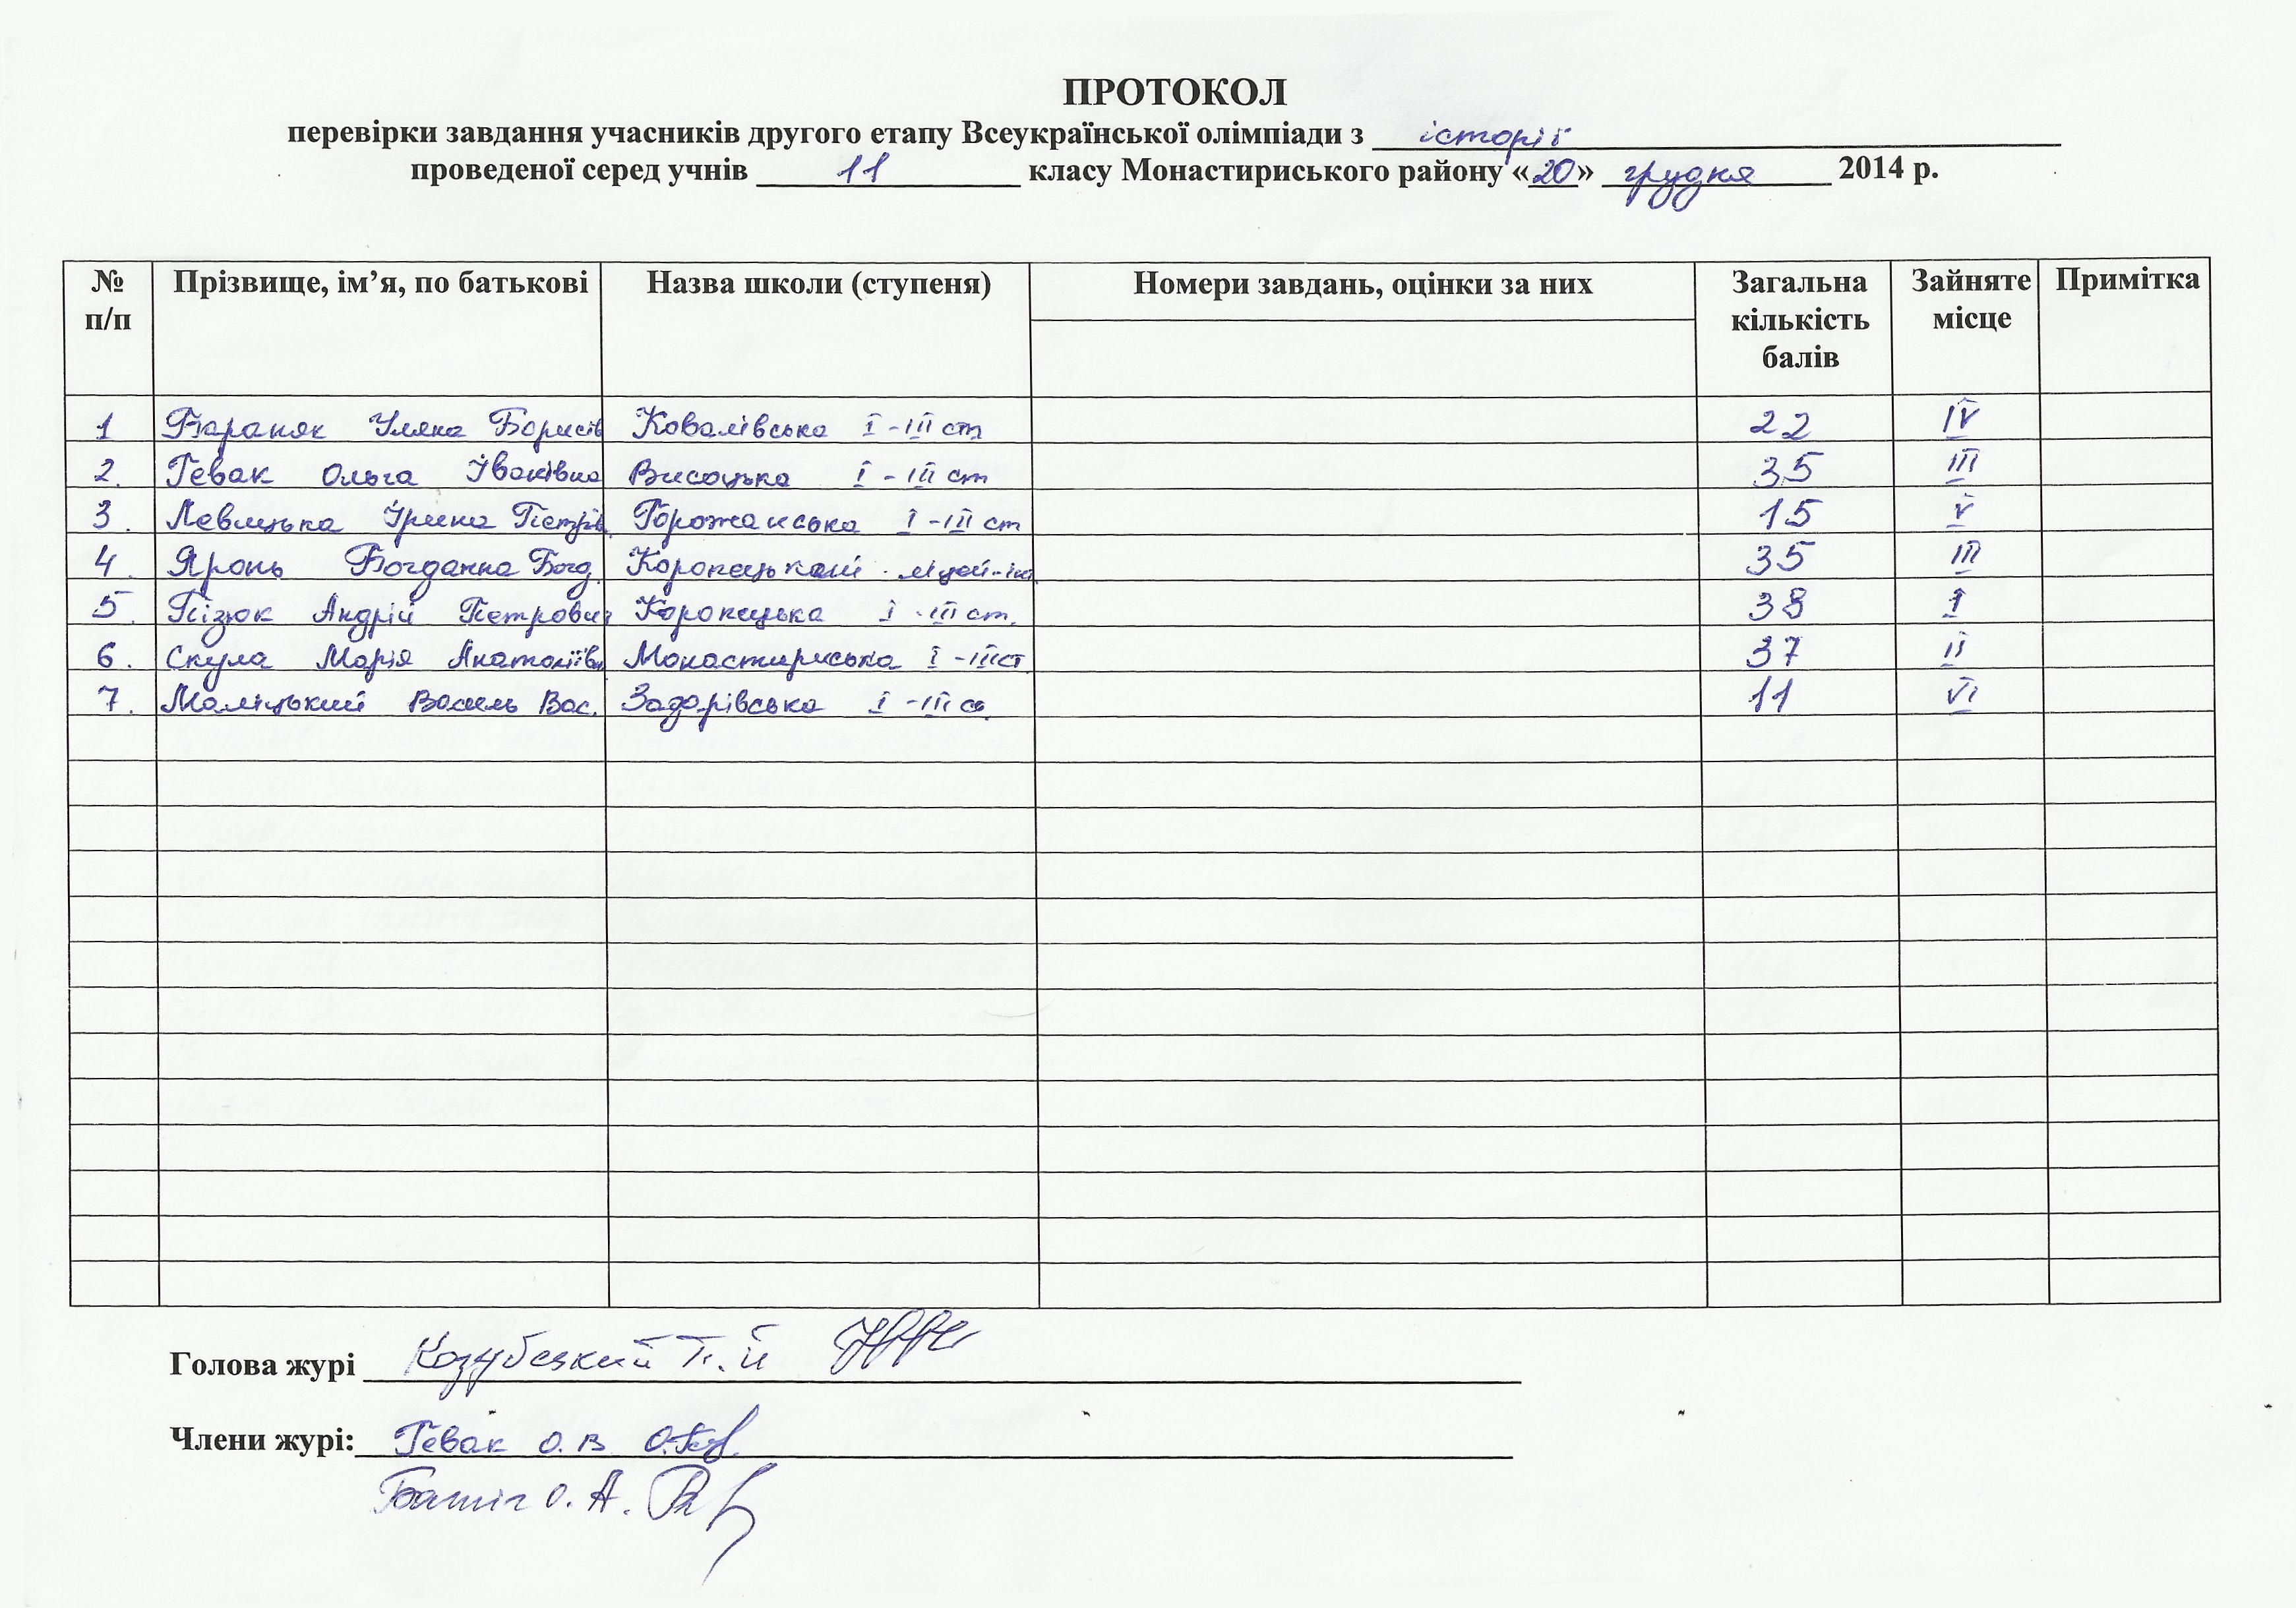 ПРОТОКОЛ
перевірки завдання учасників другого етапу Всеукраїнської олімпіади з історії
проведеної серед учнів 11 класу Монастириського району «20» грудня 2014 р.
№ п/п Прізвище, ім’я, по батькові Назва школи (ступеня) Номери завдань, оцінки за них Загальна кількість балів Зайняте місце Примітка
1 Бараняк Уляна Борисів Ковалівська І-ІІІ ст 22 IV
2. Гевак Ольга Іванівна Висоцька І-ІІІ ст 35 III
3. Левицька Ірина Петрів Горожанська І-ІІІ ст 15 V
4. Яронь Богданна Богд. Коропецький ліцей-ін 35 III
5. Пізюк Андрій Петрович Коропецька І-ІІІ ст. 38 I
6. Скула Марія Анатоліївн Монастириська І-ІІІ ст 37 II
7. Маліцький Василь Вас. Задарівська І-ІІІ ст 11 VI
Голова журі Козубський П. Й
Члени журі: Гевак О. В
Батіг О. А.